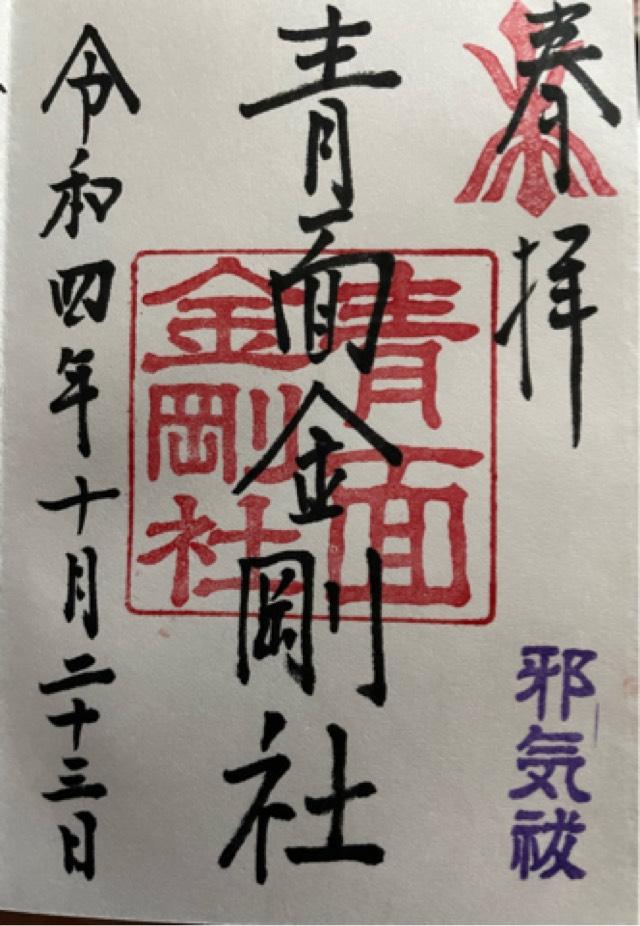 奉拝
邪気祓
青面金剛社
青面
金剛社
令和四年十月二十三日